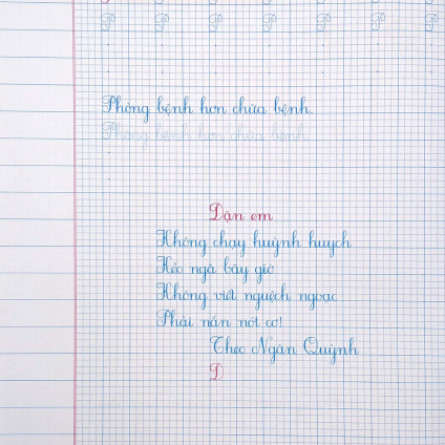 P P P P P P P
Phòng bệnh hơn chữa bệnh.
Phòng bệnh hơn chữa bệnh.
Dặn em
Không chạy huỳnh huỵch
Kẻo ngã bây giờ
Không viết nguệch ngoạc
Phải nắn nót cơ!
Theo Ngân Quỳnh
D